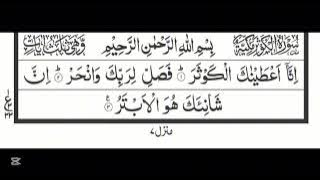 سُوْرَةُ الْكَوْثَرِ مَكِّيَّةٌ بِسْمِ اللهِ الرَّحْمٰنِ الرَّحِيْمِ وَّهِيَ ثَلٰثُ اٰيٰتٍ
اِنَّاۤ اَعْطَيْنٰكَ الْكَوْثَرَ ؕ فَصَلِّ لِرَبِّكَ وَانْحَرْ ؕ اِنَّ
شَانِئَكَ هُوَ الْاَبْتَرُ
منزل ٧